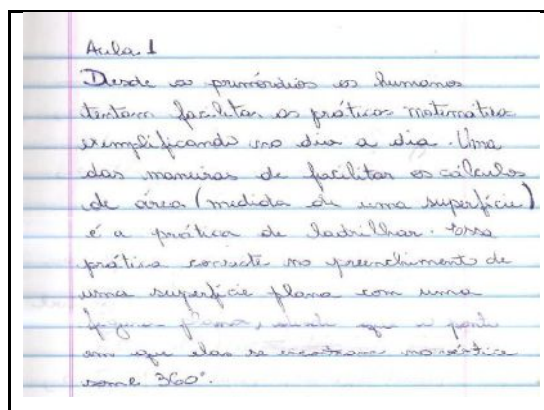 Aula 1
Desde os primórdios os humanos
tentam facilitar as práticas matemática
exemplificando no dia a dia. Uma
das maneiras de facilitar os cálculos
de área (medida de uma superfície)
é a prática de ladrilhar. Essa
prática consiste no preenchimento de
uma superfície plana com uma
figura plana, que o ponto
em que elas se encontram no vértice
some 360°.